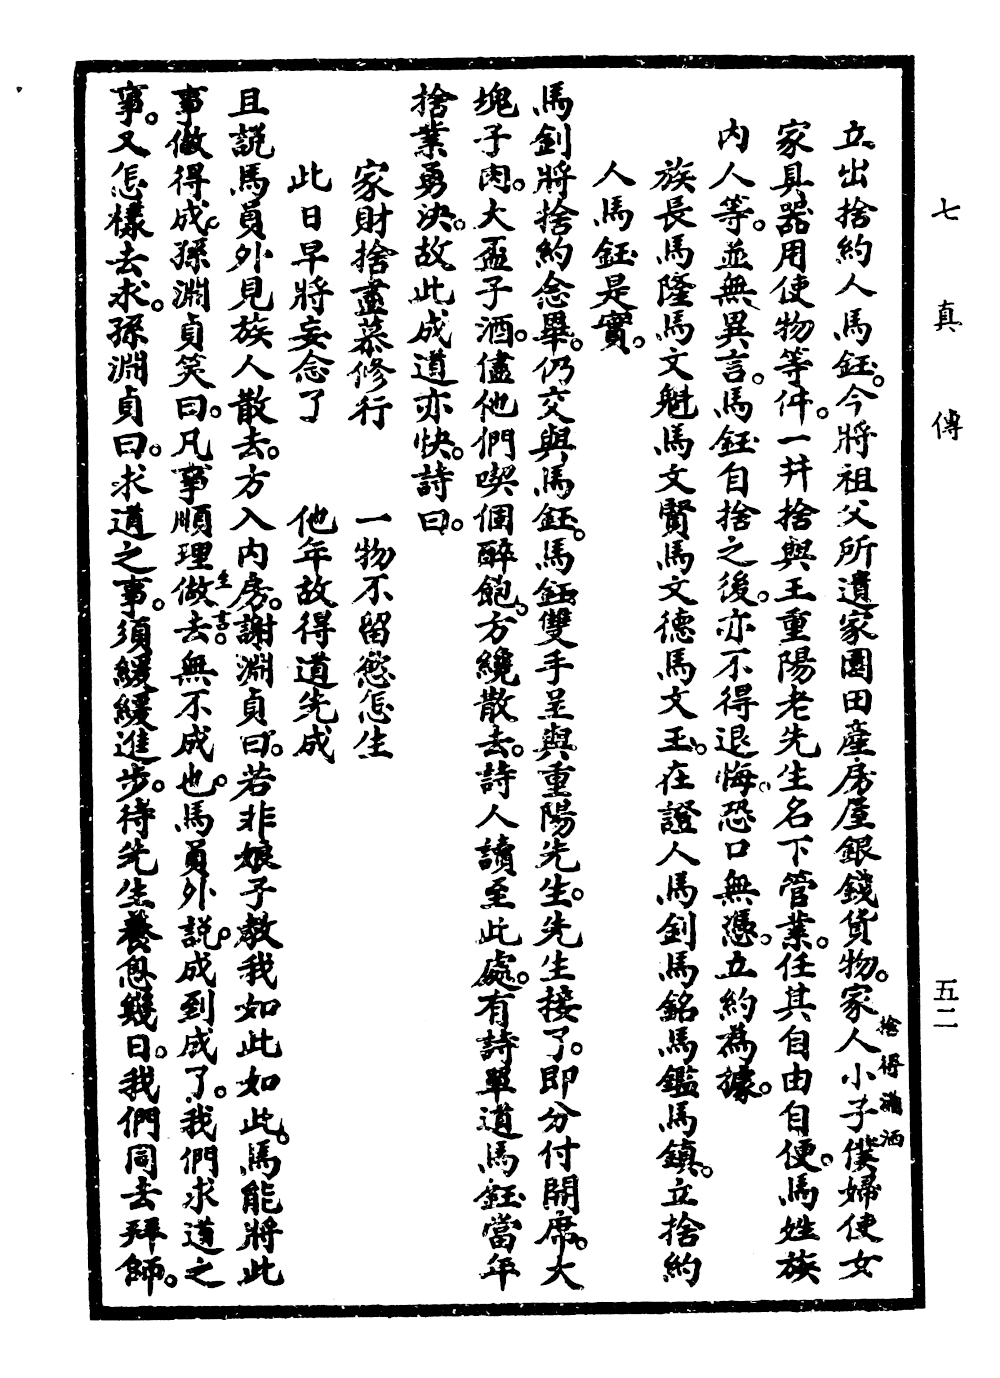 七真傳
五二
立出捨約人馬鈺。今將祖父所遺家園田產房屋銀錢貨物。家人小子僕婦使女
捨得瀟洒
家具器用使物等件。一并捨與王重陽老先生名下管業。任其自由自便。馬姓族
內人等。並無異言。馬鈺自捨之後。亦不得退悔。恐口無憑。立約為據。
族長馬隆馬文魁馬文賢馬文德馬文玉。在證人馬釗馬銘馬鑑馬鎮。立捨約
人馬鈺是實。
馬釗將捨約念畢。仍交與馬鈺。馬鈺雙手呈與重陽先生。先生接了。即分付開席。大
塊子肉。大盃子酒。儘他們喫個醉飽。方纔散去。詩人讀至此處。有詩單道馬鈺當年
捨業勇決。故此成道亦快。詩曰。
家財捨盡慕修行 一物不留慾怎生
此日早將妄念了 他年故得道先成
且說馬員外見族人散去。方入內房。謝淵貞曰。若非娘子教我如此如此。馬能將此
事做得成。孫淵貞笑曰。凡事順理做去無不成也。馬員外說。成到成了。我們求道之
至言。
事。又怎樣去求。孫淵貞曰。求道之事。須緩緩進步。待先生養息幾日。我們同去拜師。